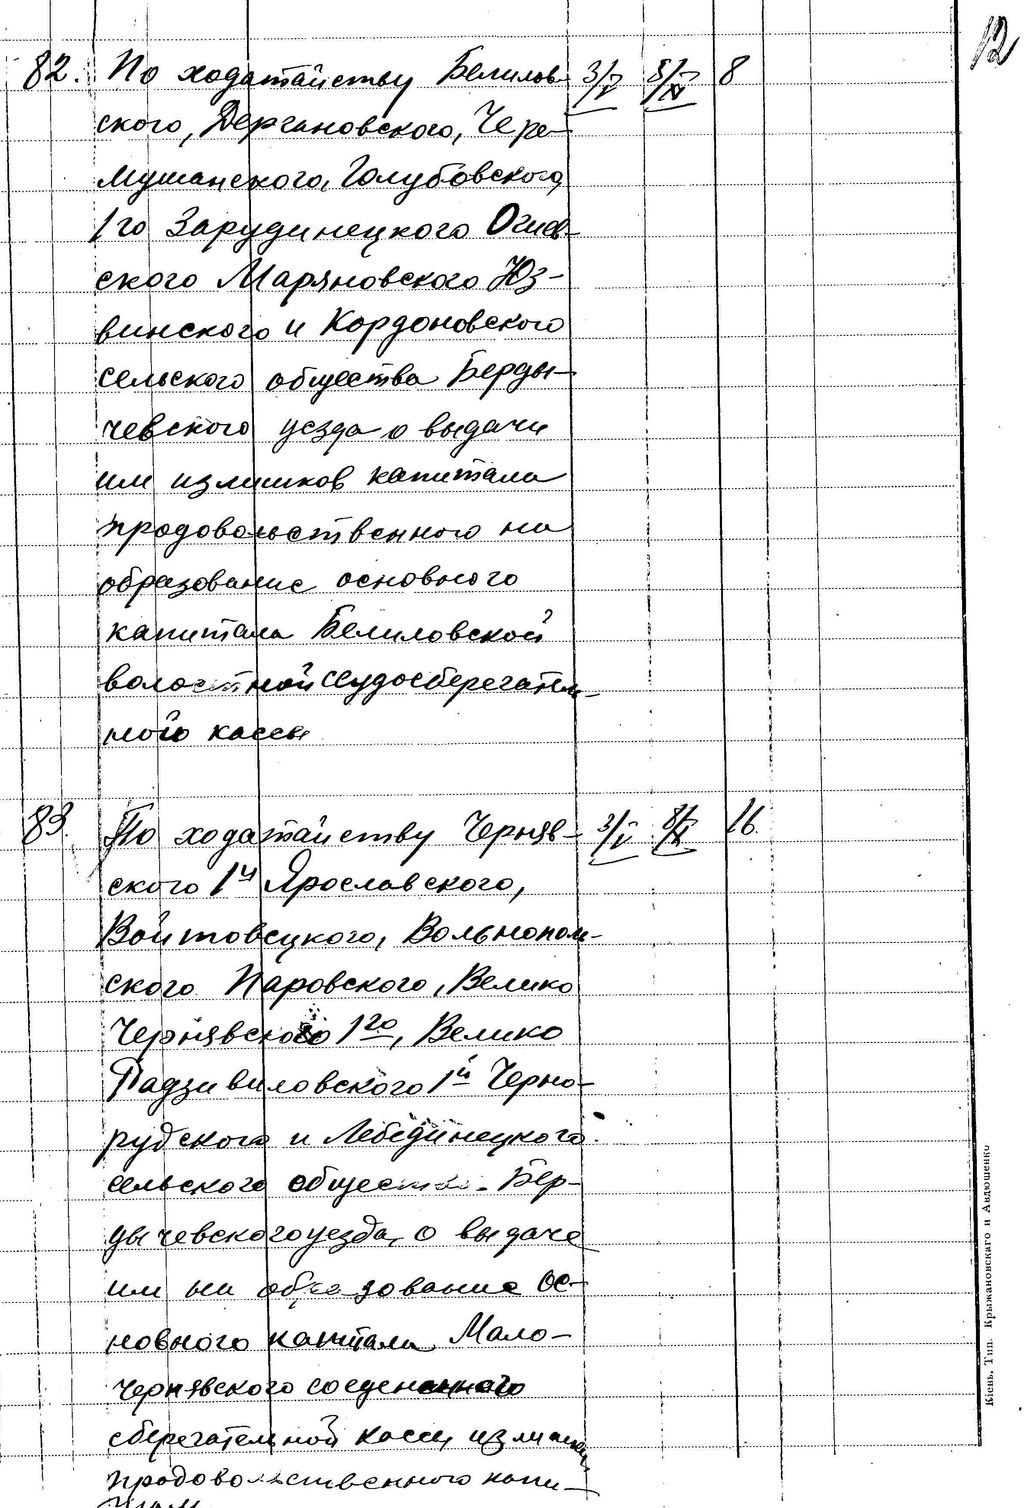 12
82. По ходатайству Белилов- 3/V 8/XI 8
ского, Дергановского, Чере-
мушанского, Голубовского,
1го Зарудинецкого Огиев-
ского Маряновского Юз-
винского и Кордоновского
сельского общества Берды-
чевского уезда о выдачи
им излишков капитала
продовольственного на
образование основного
капитала Белиловской
волостной ссудосберегатель-
ного кассы
83. По ходатайству Черняв- 3/V 16.
ского 1й Ярославского,
Войтовецкого, Вольнополь-
ского Паровского, Велико
Чернявского 1го, Велико
Радзивиловского 1й Черно-
рудского и Лебединецкого
сельского общества Бер-
дычевского уезда, о выдаче
им на образование ос-
новного капитала Мало-
Чернявского
сберегательной кассы излишки
продовольственного капи-
тала
Кіевъ, Тип. Крыжановскаго и Авдюшенко